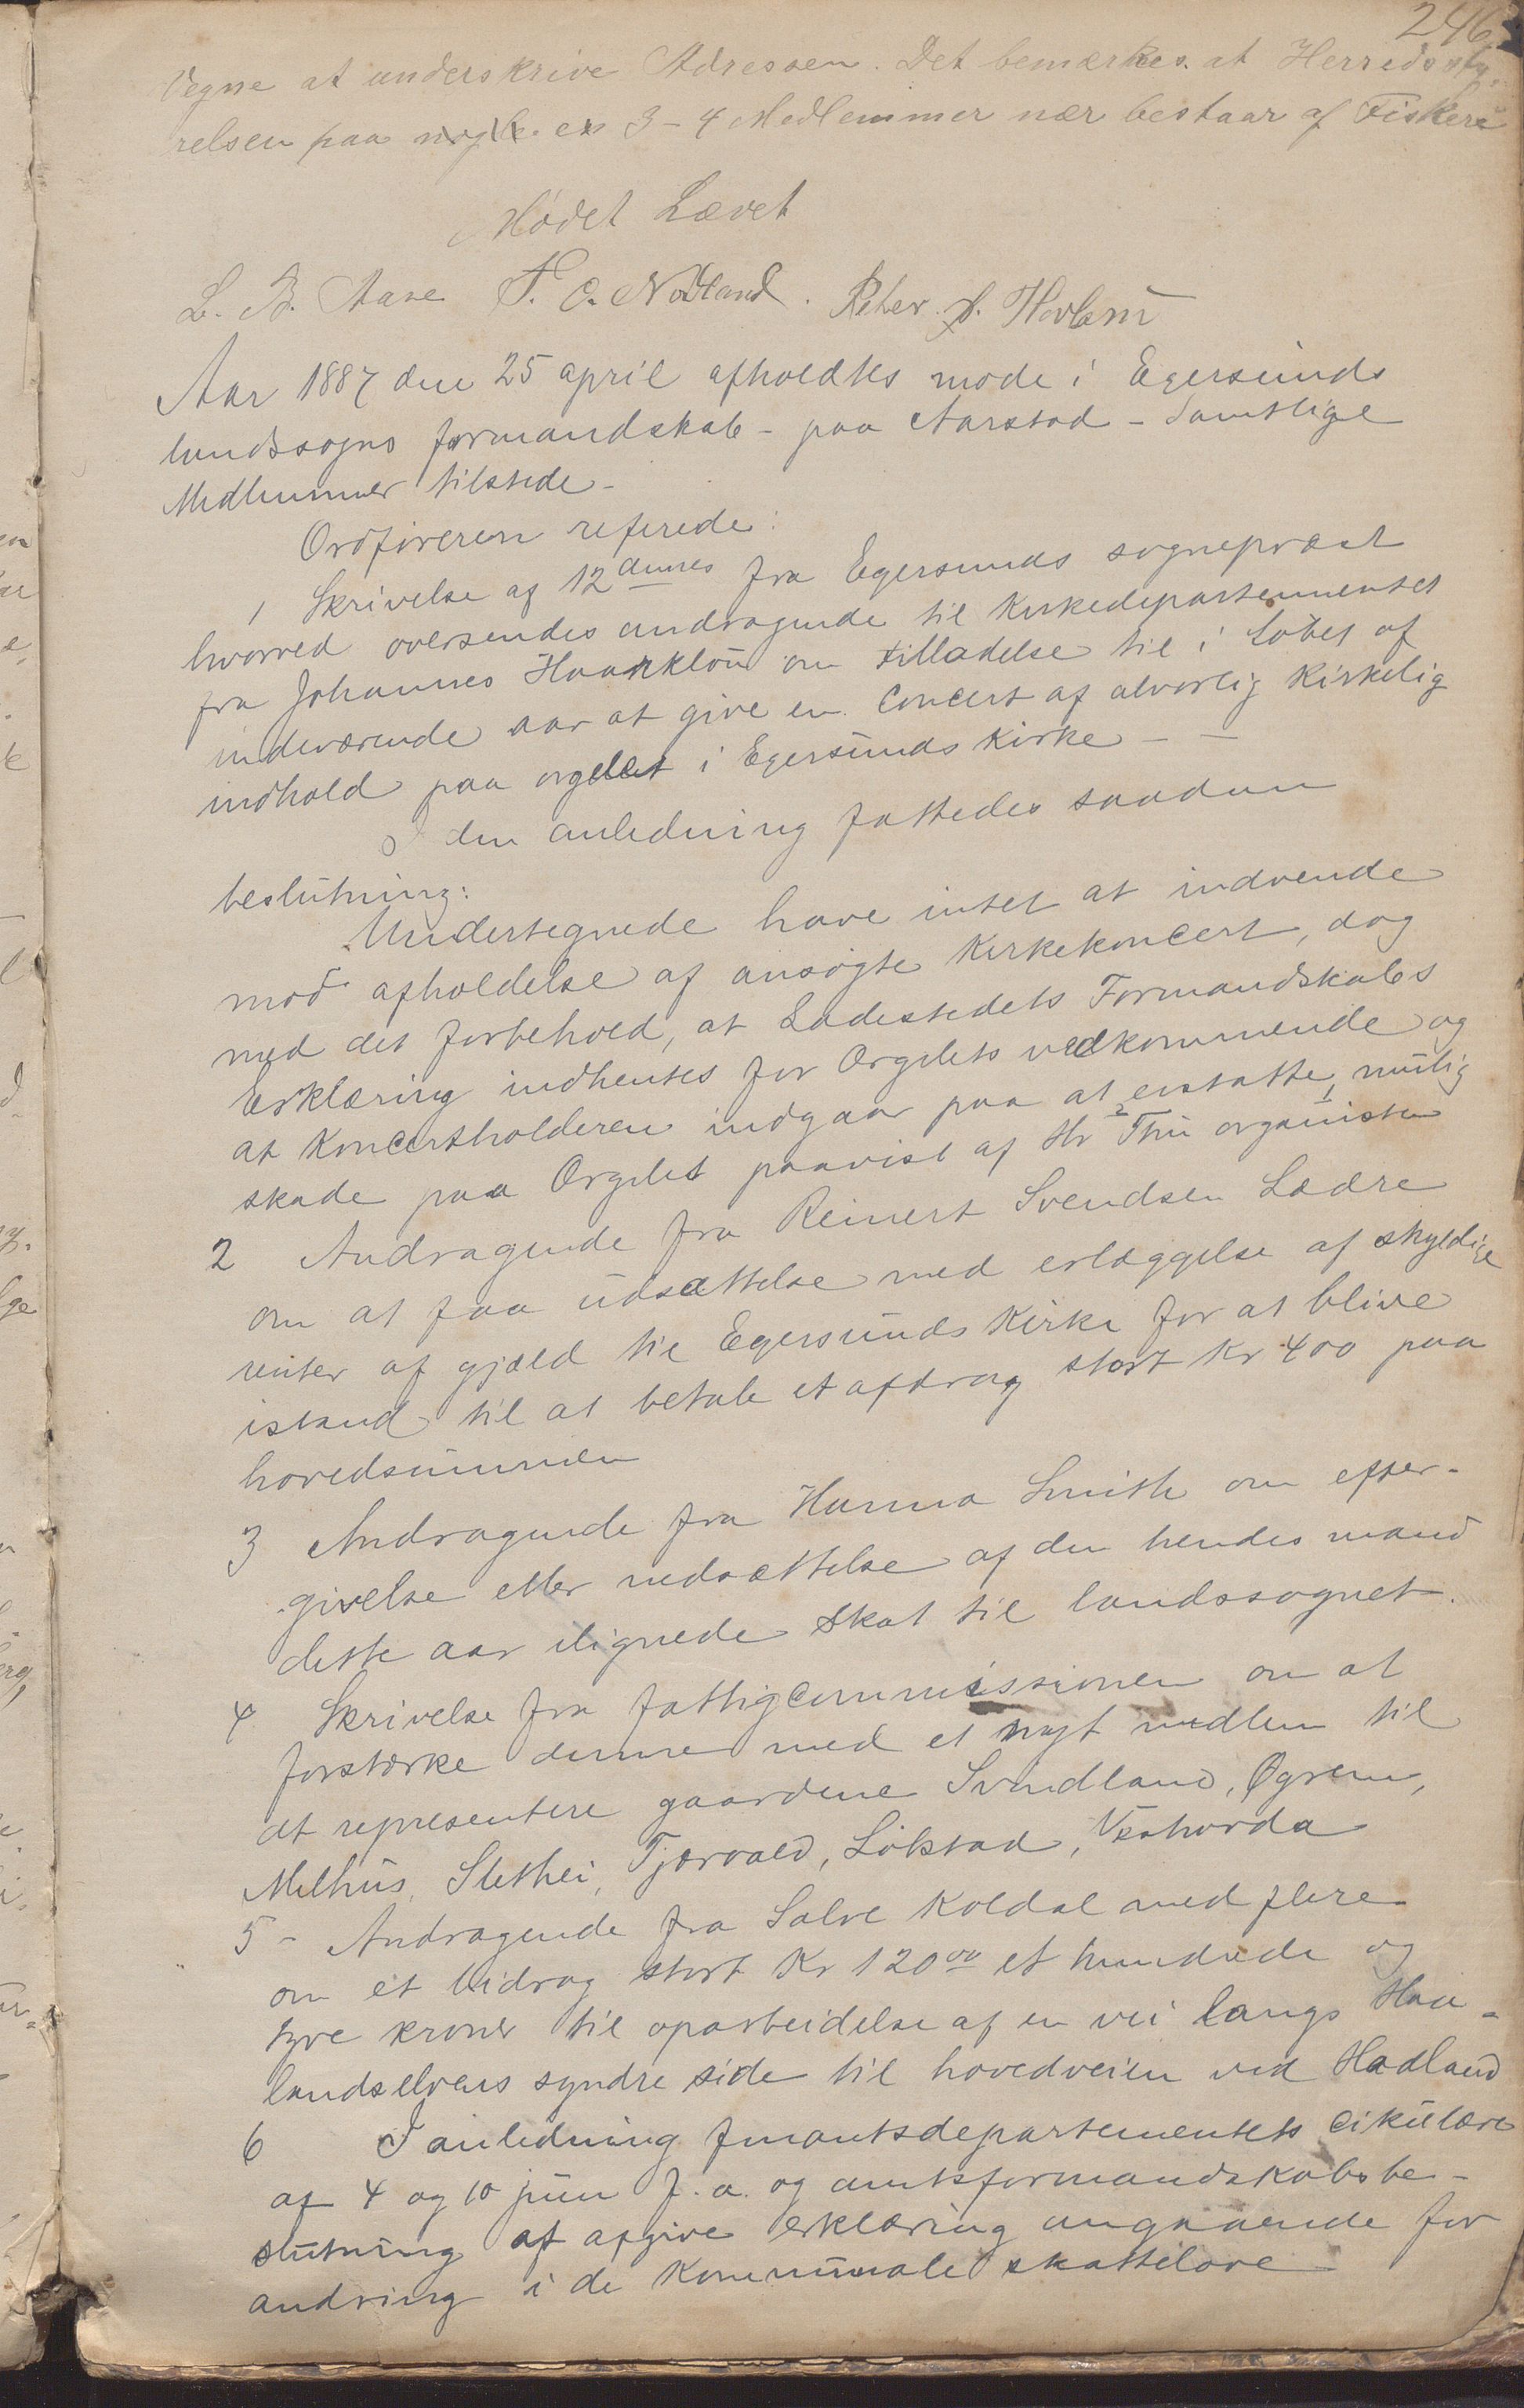 246
Vegne at underskrive Adressen. Det bemærkes at Herredssty-
relsen paa 3-4 Medlemmer nær bestaar af Fiskere
Mödet Hævet
L. B. Aase T. O. Nodland. Peter A.
Aar 1887 den 25 april afholdtes möde i Egersunds
landssogns formandskab - paa Aarstad - Samtlige
Medlemmer tilstede -
Ordföreren referede:
1 Skrivelse af 12 dennes fra Egersunds sognepræst
hvorved oversendes andragende til Kirkedepartementet
fra Johannes Haarklou om tilladelse til i Löbet af
indeværende aar at give en Concert af alvorlig Kirkelig
indhold paa orgelet i Egersunds Kirke - -
I den anledning fattedes saadan
beslutning:
Undertegnede have intet at indvende
mod afholdelse af ansögte Kirkekoncert, dog
med det forbehold, at Ladestedets Formandskabs
Erklæring indhentes for Orgelets vedkommende og
at Koncertholderen indgaar paa at erstatte mulig
skade paa Orgelet paavist af Hr 2 Thu 1 organisten
2 Andragende fra Reinert Svendsen Lædre
om at faa udsættelse med erlæggelse af skyldige
renter af gjæld til Egersunds Kirke for at blive
istand til at betale et afdrag stort Kr 400 paa
hovedsummen
3 Andragende fra Hanna Smith om efter-
givelse eller nedsættelse af den hendes mand
dette aar ilignede skat til landssognet.
4 Skrivelse fra fattigcommissionen om at
forstærke denne med et nyt medlem til
at representere gaardene Svindland, Øgreim,
Melhus, Slethei, Tjørvald, Lökstad,
5 - Andragende fra Salve Koldal med flere
om et bidrag stort Kr 120 00 et hundrede og
tyve kroner til oparbeidelse af en vei langs Haa-
landselvens syndre side til hovedveien ved Hadland
6 I anledning finantsdepartementets cikulære
af 4 og 10 juni f. a. og amtsformandskabsbe-
slutning at afgive erklæring angaaende for
andring i de Kommunale skattelove